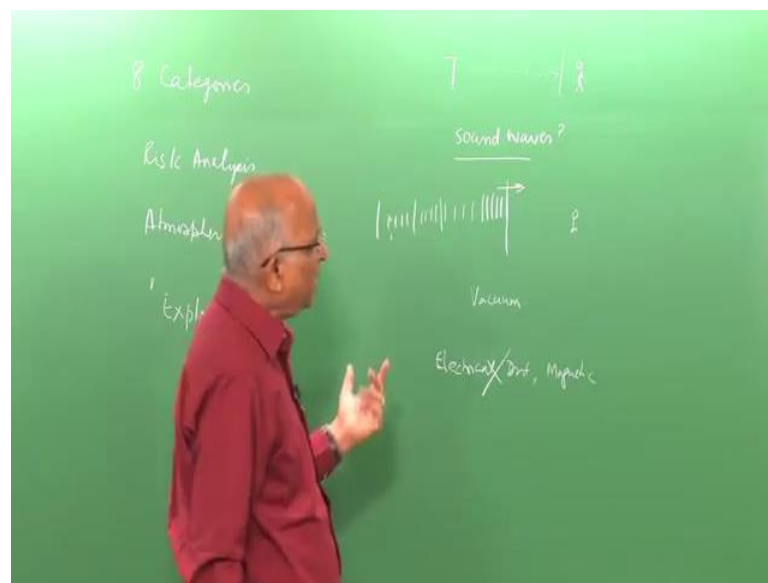 8 Categories
Risk Analysis
Atmospher
Expl
Sound waves?
Vacuum
Electrical Dist, Magnetic